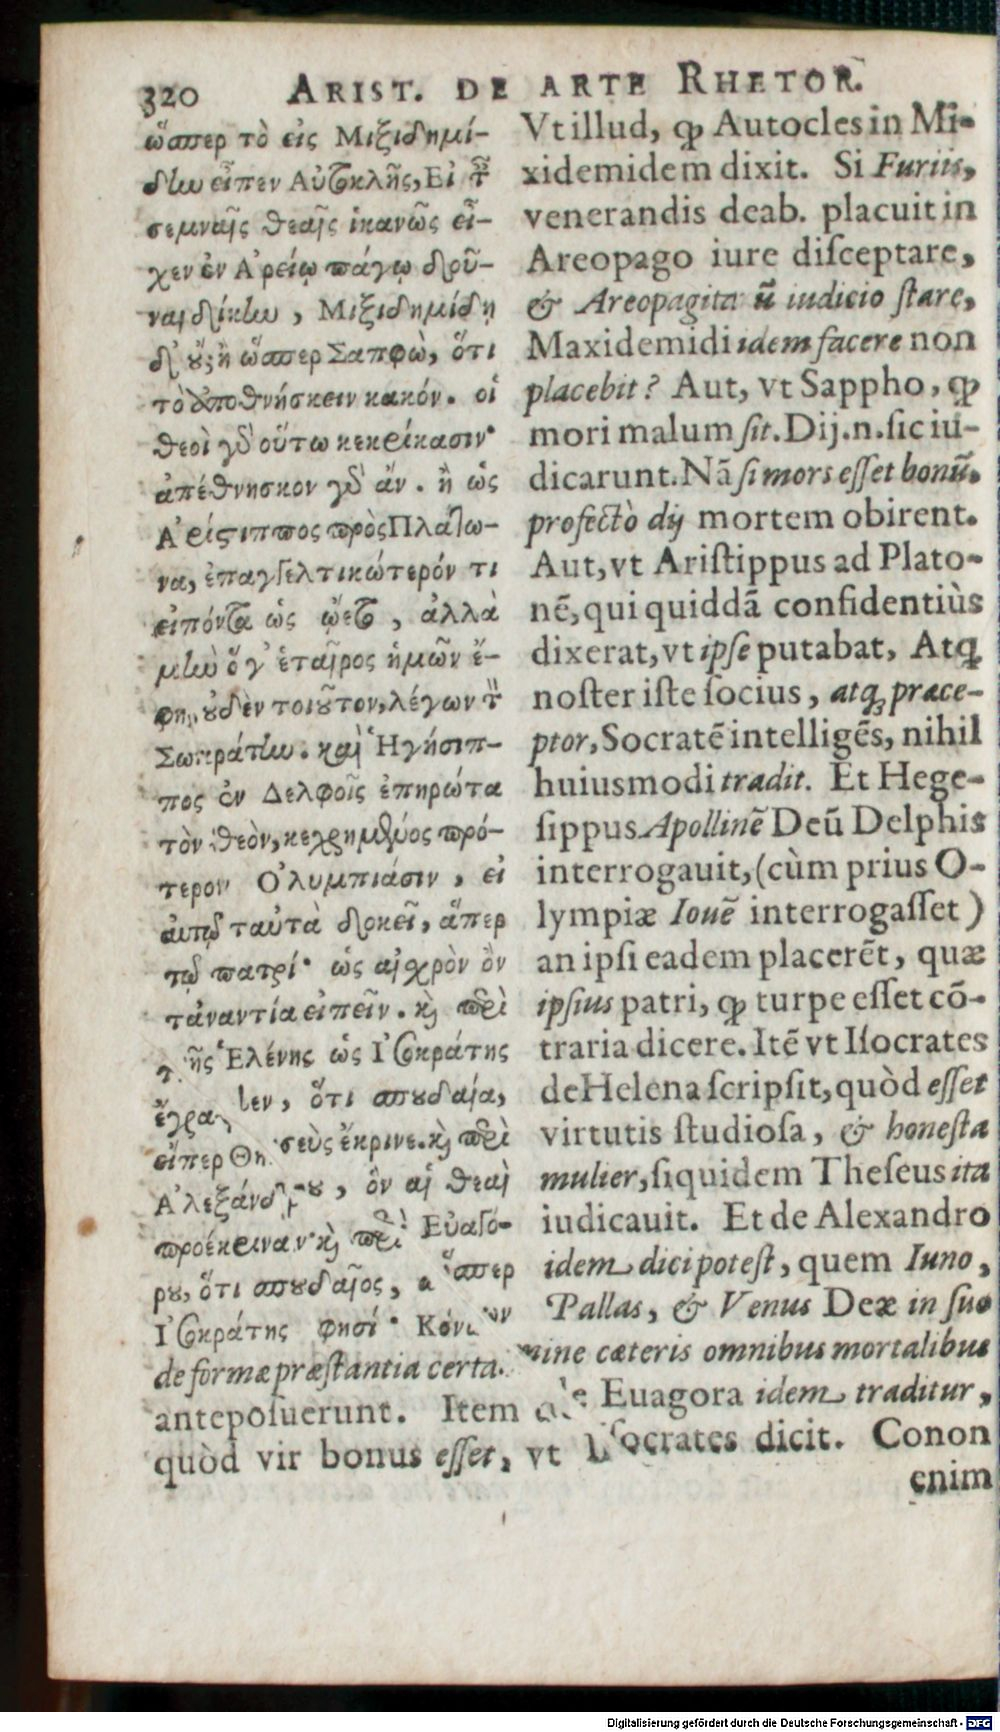 320 ARIST. DE ARTE RHETOR.
ὥσπερ τὸ εἰς Μιξιδημί-
δην εἶπεν Αὐτοκλῆς, Εἰ τ῀
σεμναῖς θεαῖς ἱκανῶς εἶ-
χεν ἐν Ἀρείῳ πάγῳ δοῦ-
ναι δίκην, Μιξιδημίδῃ
δ' οὔ; ἢ ὥσπερ Σαπφὼ, ὅτι
τὸ ἀποθνήσκειν κακόν. οἱ
θεοὶ γὸ οὕτω κεκρίκασιν·
ἀπέθνησκον γὸ ἄν. ἢ ὡς
Ἀρίστιππος πρὸς Πλάτω-
να, ἐπαγγελτικώτερόν τι
εἰπόντα ὡς ᾤετο, ἀλλὰ
μὴν ὅ γ' ἑταῖρος ἡμῶν ἔ-
φη, οὐδὲν τοιοῦτον, λέγων τ῀
Σωκράτην. καὶ Ἡγήσιπ-
πος ἐν Δελφοῖς ἐπηρώτα
τὸν θεὸν, κεχρημένος πρό-
τερον Ὀλυμπιάσιν, εἰ
αὐτῷ ταὐτὰ δοκεῖ, ἅπερ
τῷ πατρί· ὡς αἰσχρὸν ὂν
τἀναντία εἰπεῖν. κὶ περὶ
τῆς Ἑλένης ὡς Ἰσοκράτης
ἔγραψεν, ὅτι σπουδαία,
εἴπερ Θησεὺς ἔκρινε. κὶ περὶ
Ἀλεξάνδρου, ὃν αἱ θεαὶ
προέκριναν· κὶ περὶ Εὐαγό-
ρου, ὅτι σπουδαῖος, ὥσπερ
Ἰσοκράτης φησί· Κόνων
Vt illud, ꝙ Autocles in Mi-
xidemidem dixit. Si Furiis,
venerandis deab. placuit in
Areopago iure disceptare,
& Areopagitaꝝ iudicio stare,
Maxidemidi idem facere non
placebit? Aut, vt Sappho, ꝙ
mori malum sit. Dij .n. sic iu-
dicarunt. Nā si mors esset bonū,
profectò dij mortem obirent.
Aut, vt Aristippus ad Plato-
nē, qui quiddā confidentiùs
dixerat, vt ipse putabat, Atꝗ
noster iste socius, atꝗ; præce-
ptor, Socratē intelligēs, nihil
huiusmodi tradit. Et Hege-
sippus Apollinē Deū Delphis
interrogauit, (cùm prius O-
lympiæ Iouē interrogasset)
an ipsi eadem placerēt, quæ
ipsius patri, ꝙ turpe esset cō-
traria dicere. Itē vt Isocrates
de Helena scripsit, quòd esset
virtutis studiosa, & honesta
mulier, siquidem Theseus ita
iudicauit. Et de Alexandro
idem dici potest, quem Iuno,
Pallas, & Venus Deæ in suo
de formæ præstantia certamine cæteris omnibus mortalibus
anteposuerunt. Item de Euagora idem traditur,
quòd vir bonus esset, vt Isocrates dicit. Conon
enim
Digitalisierung gefördert durch die Deutsche Forschungsgemeinschaft - DFG